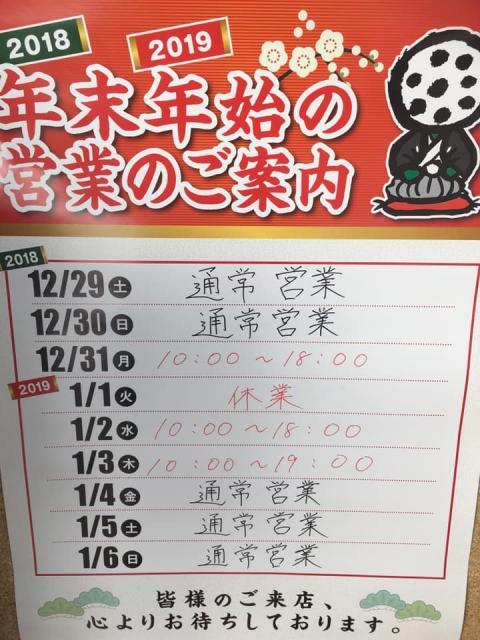 2018
2019
年末年始の
営業のご案内
2018
12/29 土 通常営業
12/30 日 通常営業
12/31 月 10:00～18:00
2019
1/1 火 休業
1/2 水 10:00～18:00
1/3 木 10:00～19:00
1/4 金 通常営業
1/5 土 通常営業
1/6 日 通常営業
皆様のご来店、
心よりお待ちしております。